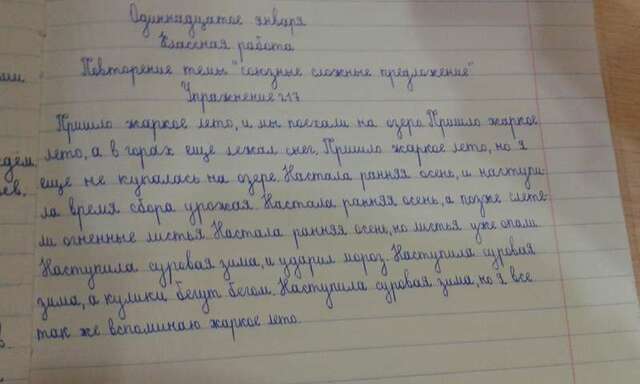 Одиннадцатое января
Классная работа
Повторение темы "союзные сложные предложение"
Упражнение 217
Пришло жаркое лето, и мы поехали на озеро. Пришло жаркое
лето, а в горах еще лежал снег. Пришло жаркое лето, но я
еще не купалась на озере. Настала ранняя осень, и наступи-
ла время сбора урожая. Настала ранняя осень, а позже слете-
ли огненные листья. Настала ранняя осень, но листья уже опали.
Наступила суровая зима, и ударил мороз. Наступила суровая
зима, а кулики бегут бегом. Наступила суровая зима, но я все
так же вспоминаю жаркое лето.